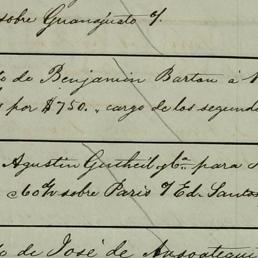 sobre Guanajuato
de Benjamin Barton á
por $750., cargo de los segund
Agustin Gutheil y Ca. para
60 d/v sobre Paris Ed. Santos
de José de Ansoategui